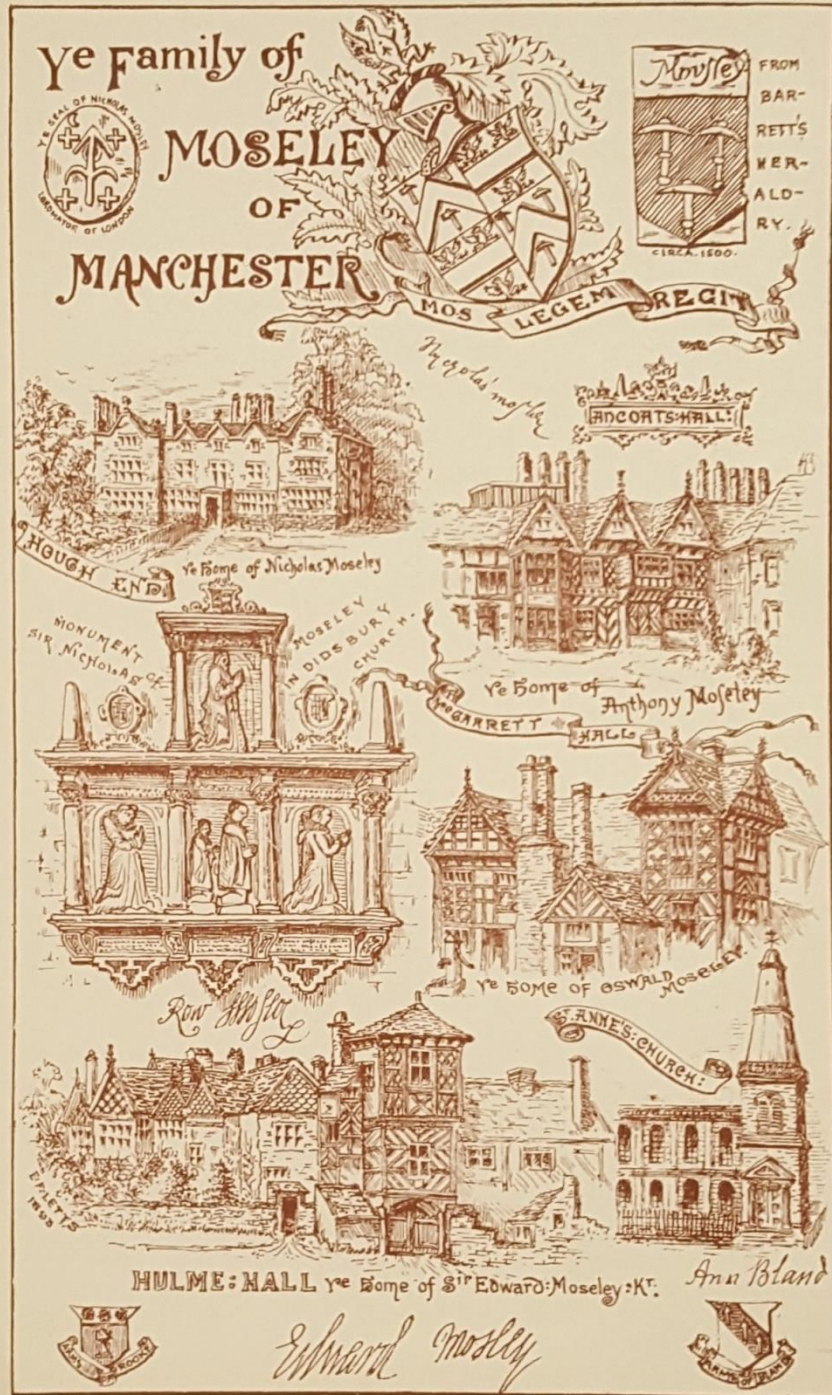 Ye Family of
MOSELEY
OF
MANCHESTER
YE SEAL OF NICHOLAS MOSLEY
OF LONDON
Mousley
FROM
BAR-
RETT'S
HER-
ALD-
RY.
CIRCA. 1500.
MOS LEGEM REGIT
Nycholas mosley
ANCOATS:HALL:
HOUGH END
Ye Home of Nicholas Moseley
Ye Home of
Anthony Moseley
MONUMENT OF
SIR NICHOLAS
MOSELEY
IN DIDSBURY
CHURCH.
GARRETT HALL
Ye Home of OSWALD
MOSELEY.
Row Mosley
ST. ANNE'S:CHURCH:
HULME:HALL Yee Home of Sir Edward:Moseley:Kt.
Ann Bland
Edward Mosley
ARMS OF BLAND